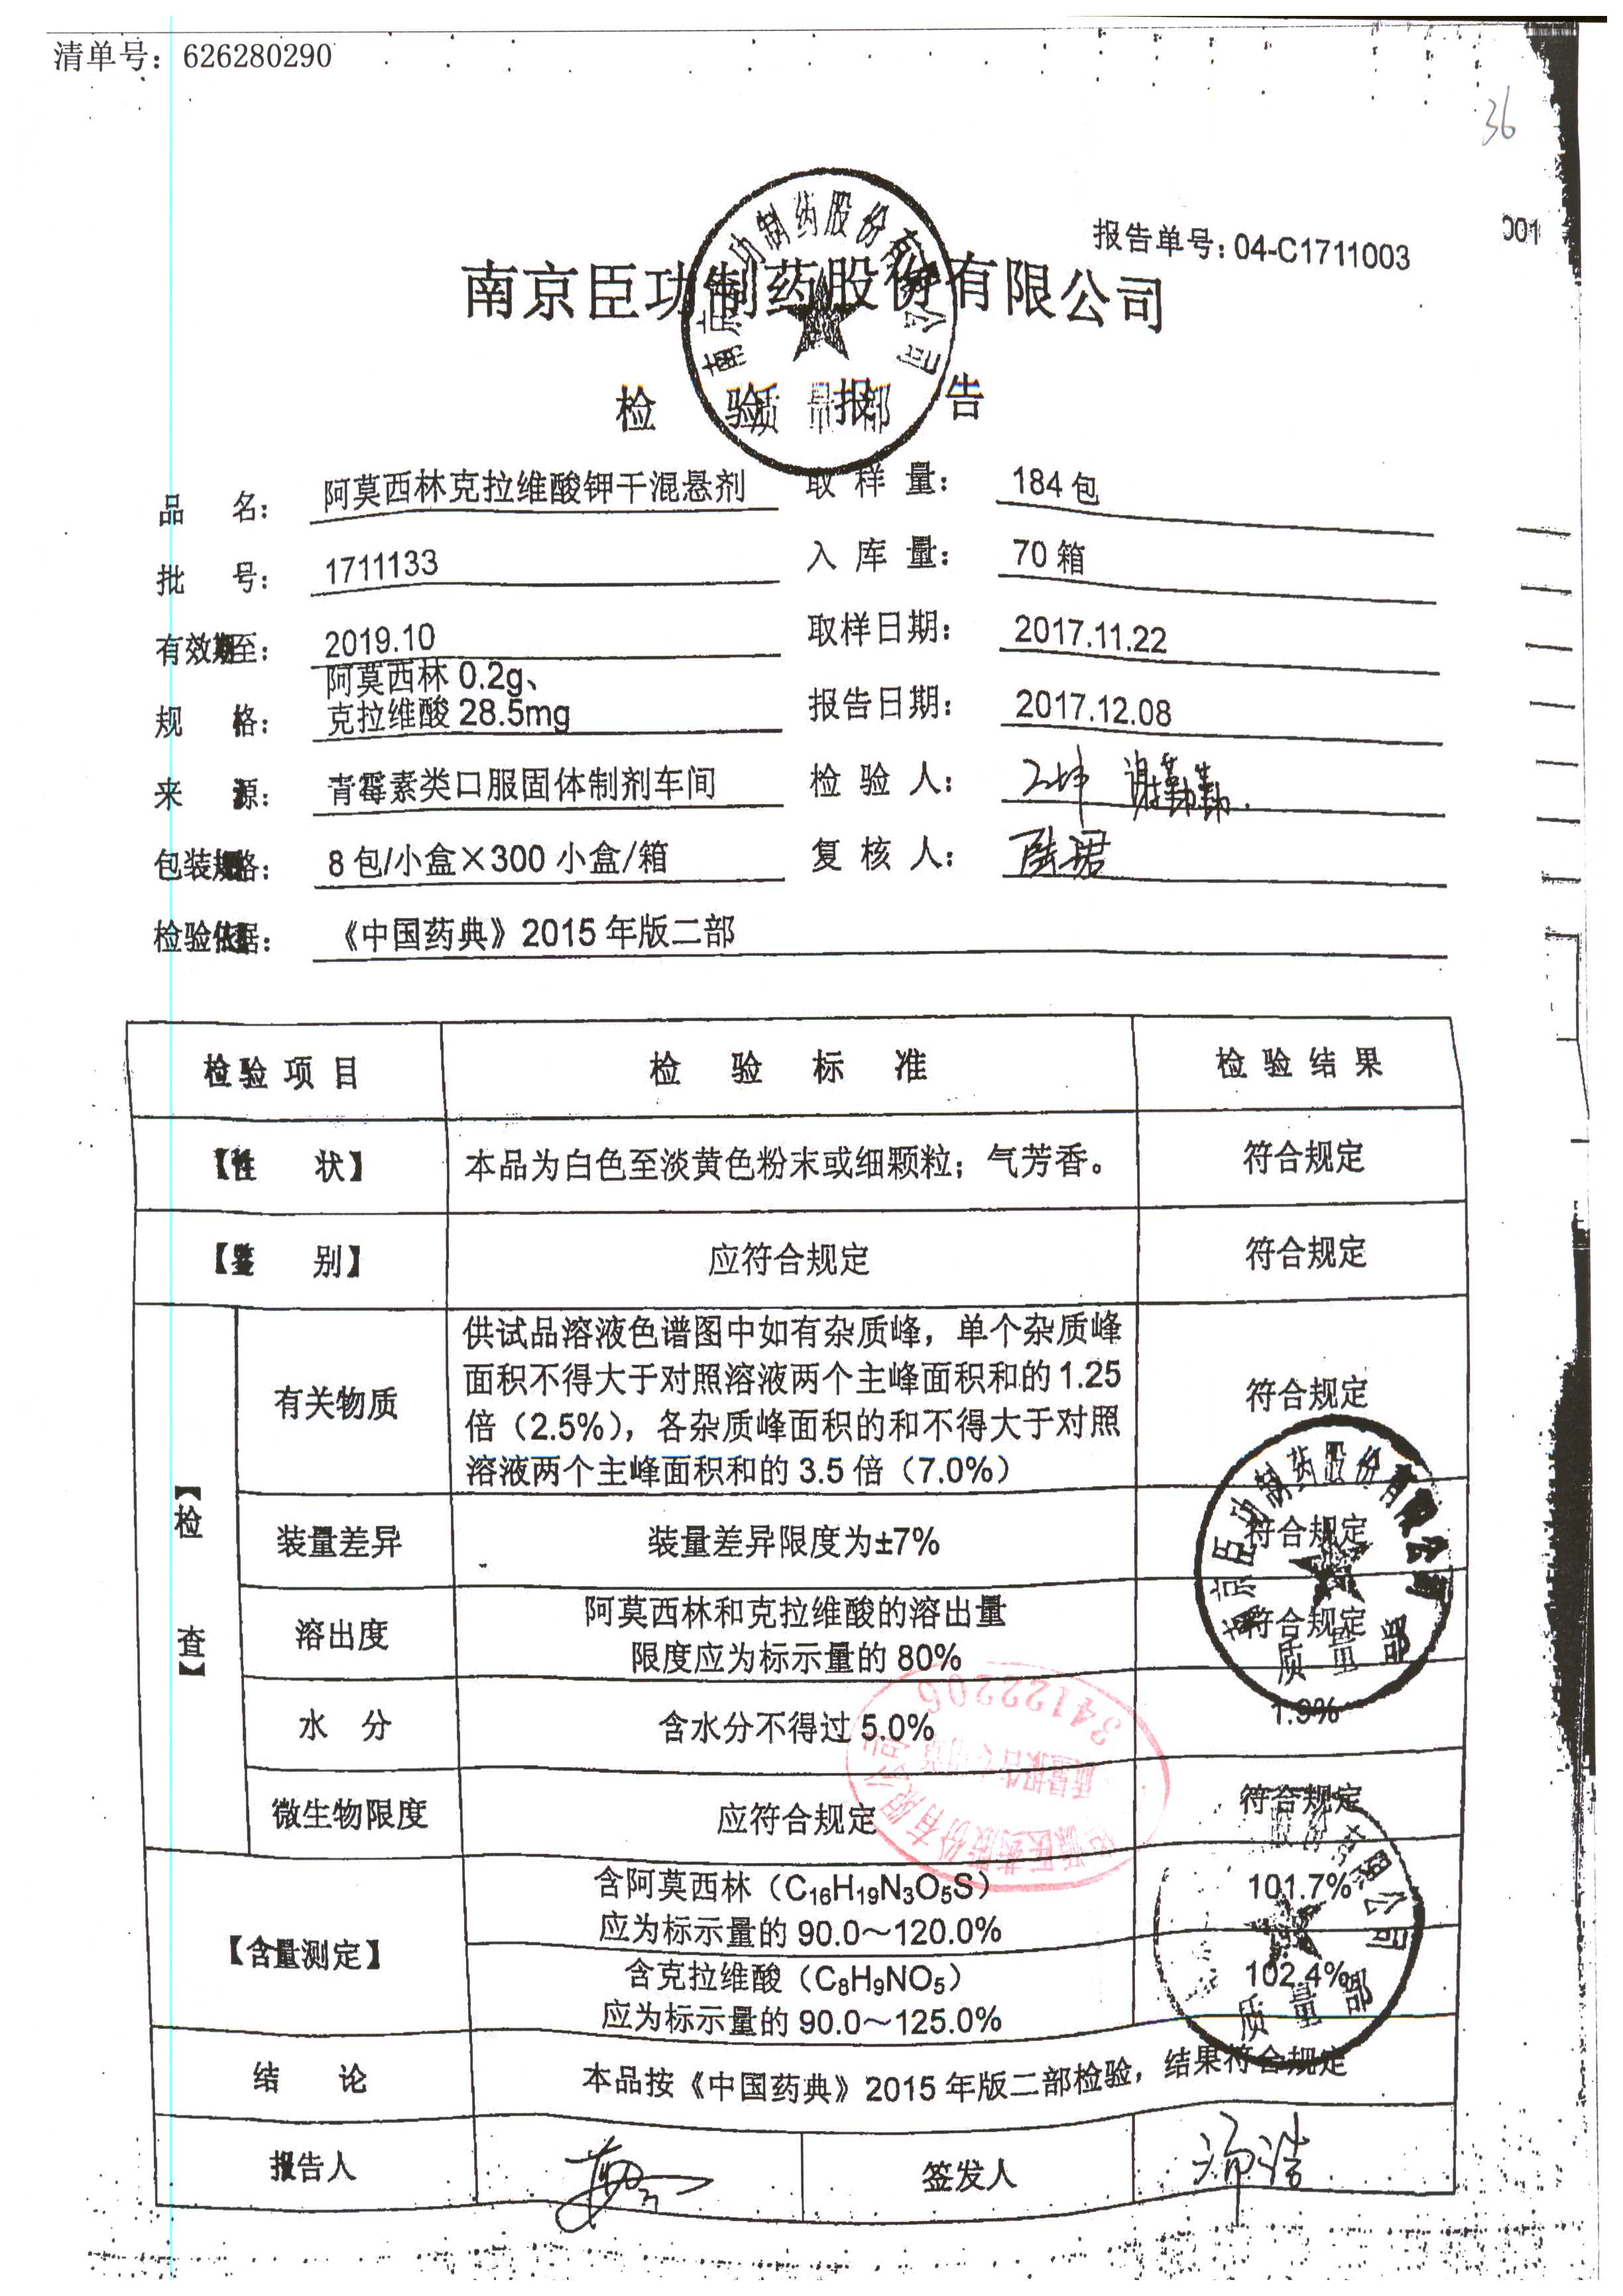 清单号：626280290
36
报告单号：04-C1711003
001
南京臣功制药股份有限公司
检 验 报 告
质量部
品 名： 阿莫西林克拉维酸钾干混悬剂 取 样 量： 184包
批 号： 1711133 入 库 量： 70箱
有效期至： 2019.10 取样日期： 2017.11.22
阿莫西林 0.2g、
规 格： 克拉维酸 28.5mg 报告日期： 2017.12.08
来 源： 青霉素类口服固体制剂车间 检 验 人：
包装规格： 8包/小盒×300小盒/箱 复 核 人：
检验依据： 《中国药典》2015年版二部
检验项目 检 验 标 准 检验结果
【性 状】 本品为白色至淡黄色粉末或细颗粒；气芳香。 符合规定
【鉴 别】 应符合规定 符合规定
【检 查】
供试品溶液色谱图中如有杂质峰，单个杂质峰
面积不得大于对照溶液两个主峰面积和的1.25
有关物质 倍（2.5%），各杂质峰面积的和不得大于对照 符合规定
溶液两个主峰面积和的3.5倍（7.0%）
装量差异 装量差异限度为±7% 符合规定
溶出度 阿莫西林和克拉维酸的溶出量 符合规定
限度应为标示量的80%
南京臣功制药股份有限公司
质量部
水 分 含水分不得过5.0% 1.9%
34122206
微生物限度 应符合规定 符合规定
【含量测定】
含阿莫西林（C16H19N3O5S） 101.7%
应为标示量的90.0～120.0%
含克拉维酸（C8H9NO5） 102.4%
应为标示量的90.0～125.0%
质量部
结 论 本品按《中国药典》2015年版二部检验，结果符合规定
报告人 签发人